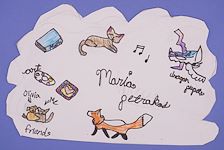 Maria
getrakas
art
Olivia
me
friends
dragon
paper